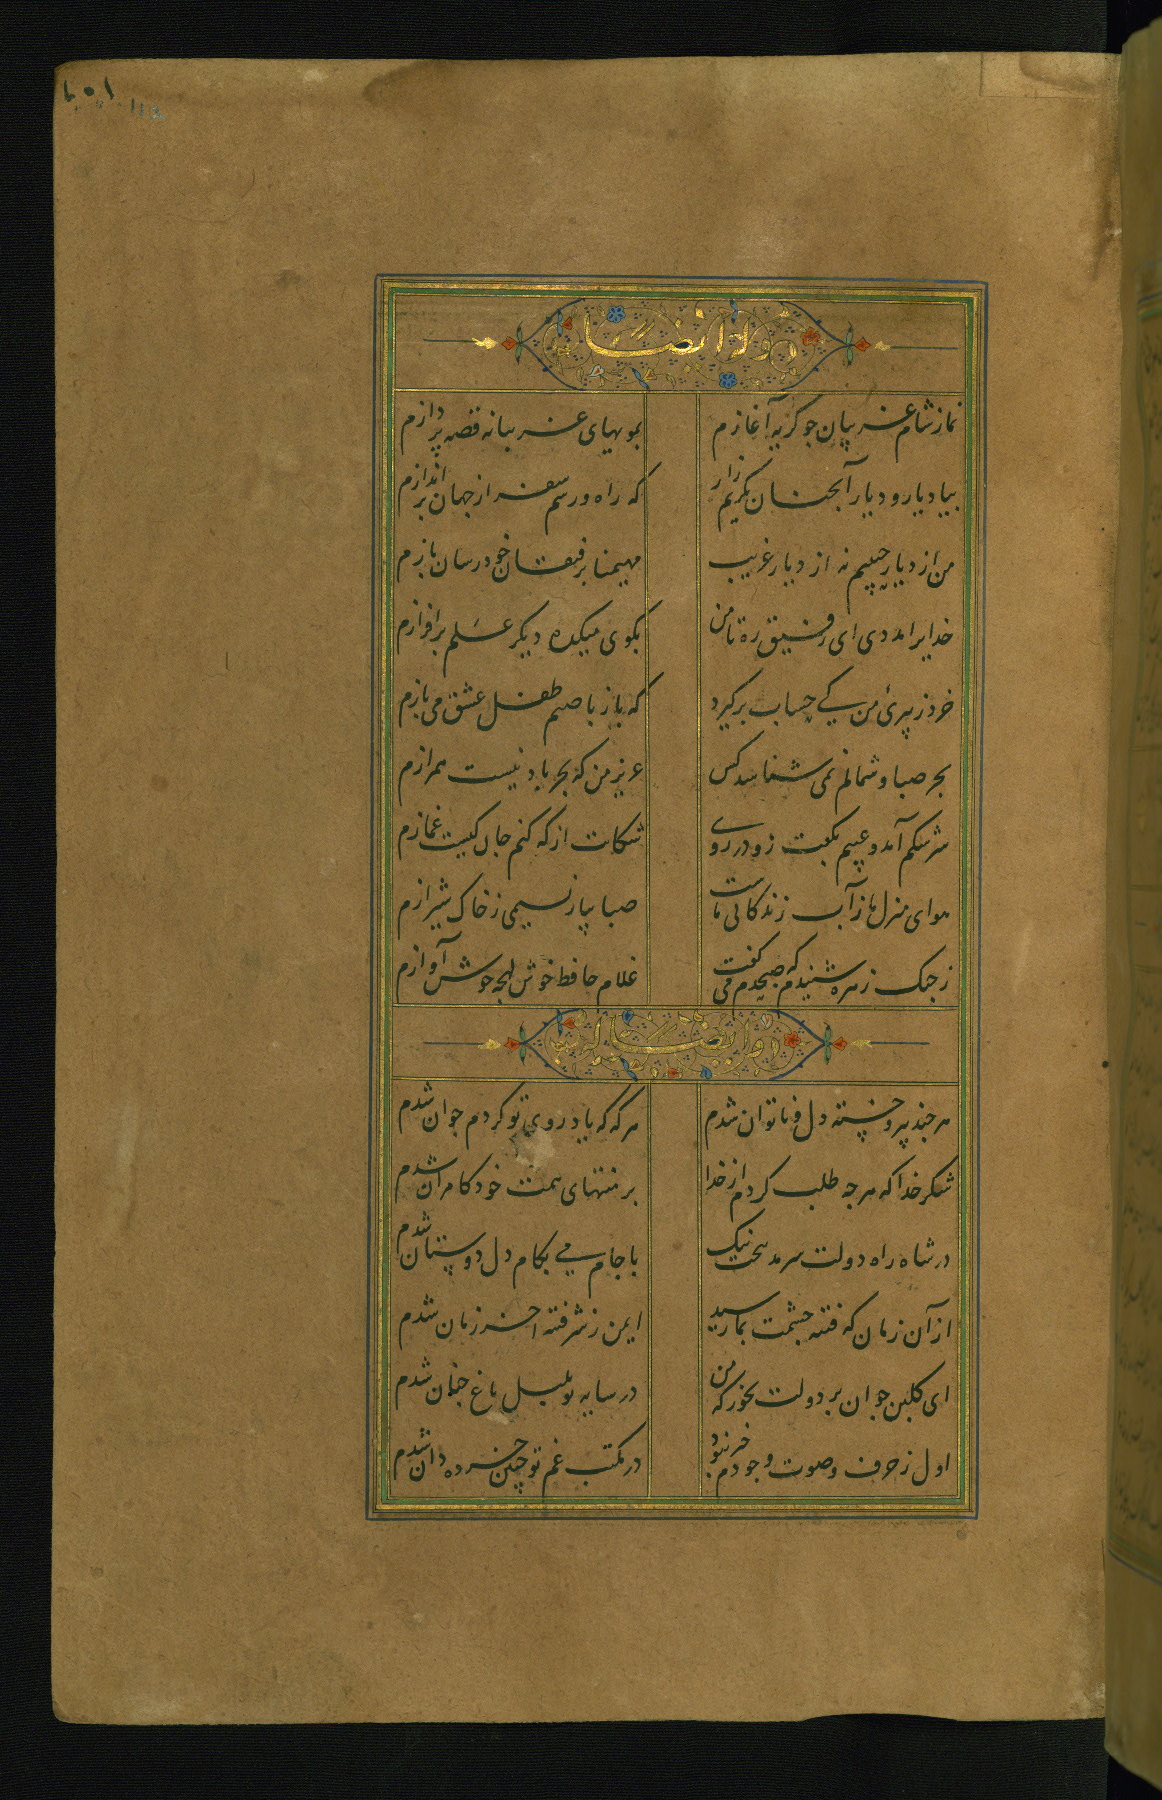 وله ایضا
نماز شام غریبان چو گریه آغازم
بمویهای غریبانه قصه پردازم
بیاد یار و دیار آنچنان بگریم زار
که راه و رسم سفر از جهان براندازم
من از دیار حبیبم نه از دیار غریب
مهیمنا برفیقان خود رسان بازم
خدایرا مددی ای رفیق ره تا من
بکوی میکده دیگر علم برافرازم
خرد ز پیرئ من کی حساب برگیرد
که باز با صنم طفل عشق می بازم
بجز صبا و شمالم نمی شناسد کس
عزیز من که بجز باد نیست همرازم
سرشکم آمد و عیبم بگفت روی در روی
شکایت از که کنم جان کیست غمازم
هوای منزل یار آب زندگانی ماست
صبا بیار نسیمی ز خاک شیرازم
ز چنگ زهره شنیدم که صبحدم می گفت
غلام حافظ خوش لهجه خوش آوازم
وله ایضا
هر چند پیر و خسته دل و ناتوان شدم
هر گه که یاد روی تو کردم جوان شدم
شکر خدا که هر چه طلب کردم از خدا
بر منتهای همت خود کامران شدم
در شاه راه دولت سرمد بتخت نیک
با جام می بکام دل دوستان شدم
از آن زمان که فتنه چشمت بما رسید
ایمن ز شر فتنه آخر زمان شدم
ای گلبن جوان بر دولت بخور که من
در سایه تو بلبل باغ جهان شدم
اول ز حرف و صوت وجودم خبر نبود
در مکتب غم تو چنین خرده دان شدم